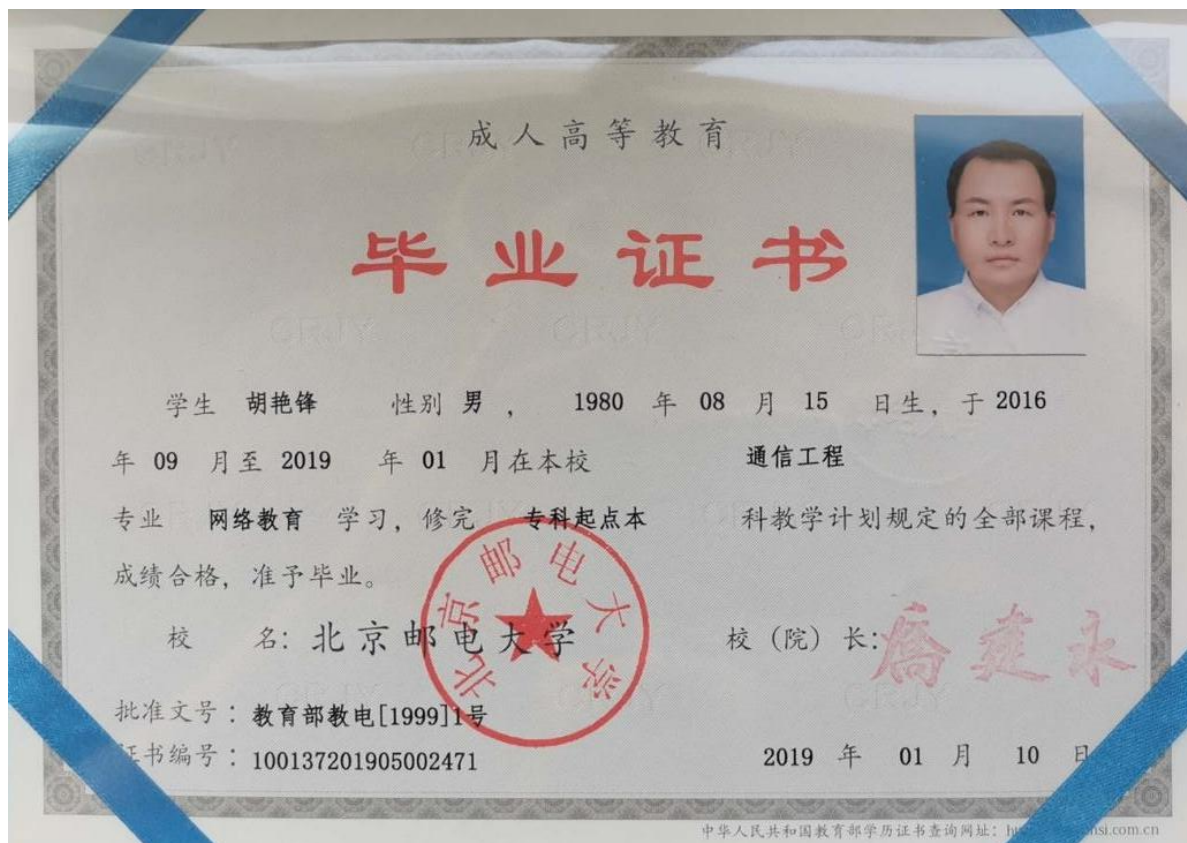 成人高等教育
毕业证书
CRJY CRJY
学生 胡艳锋 性别 男 , 1980 年 08 月 15 日生, 于 2016
年 09 月至 2019 年 01 月在本校 通信工程
专业 网络教育 学习, 修完 专科起点本 科教学计划规定的全部课程,
成绩合格, 准予毕业。
校 名: 北京邮电大学 校 (院) 长: 乔建永
北京邮电大学
批准文号: 教育部教电[1999]1号
证书编号: 100137201905002471
2019 年 01 月 10 日
中华人民共和国教育部学历证书查询网址: